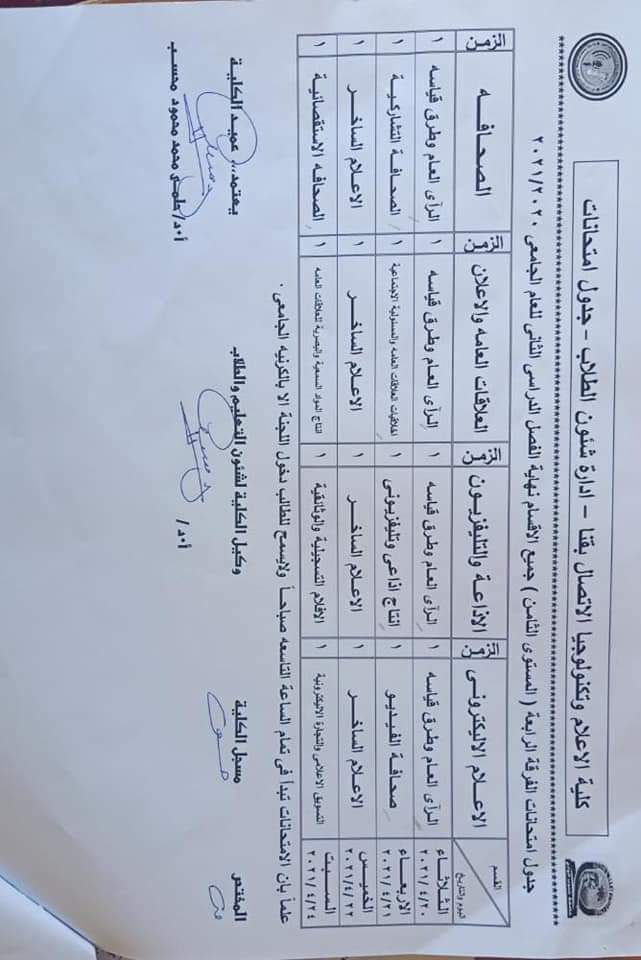 كلية الاعلام وتكنولوجيا الاتصال بقنا - ادارة شئون الطلاب - جدول امتحانات
جدول امتحانات الفرقة الرابعة ( المستوى الثامن ) جميع الاقسام نهاية الفصل الدراسى الثانى للعام الجامعى ٢٠٢١/٢٠٢٠
القسم
اليوم والتاريخ
الاعلام الاليكترونى
الزمن
الاذاعة والتليفزيون
الزمن
العلاقات العامه والاعلان
الزمن
الصحافه
الزمن
الثلاثاء
٢٠٢١/٤/٢٠
الرأى العام وطرق قياسه
١
الرأى العام وطرق قياسه
١
الرأى العام وطرق قياسه
١
الرأى العام وطرق قياسه
١
الاربعاء
٢٠٢١/٤/٢١
صحافة الفيديو
١
انتاج اذاعى وتليفزيونى
١
اخلاقيات العلاقات العامه والمسئولية الاجتماعية
١
الصحافة التشاركية
١
الخميس
٢٠٢١/٤/٢٢
الاعلام الساخر
١
الاعلام الساخر
١
الاعلام الساخر
١
الاعلام الساخر
١
السبت
٢٠٢١/٤/٢٤
التسويق الاعلامى والتجارة الاليكترونية
١
الافلام التسجيلية والوثائقية
١
انتاج المواد السمعية والبصرية للعلاقات العامه
١
الصحافه الاستقصائية
١
علماً بان الامتحانات تبدأ فى تمام الساعة التاسعه صباحاً ولايسمح للطالب دخول اللجنة الا بالكرنيه الجامعى .
المختص
مسجل الكلية
وكيل الكلية لشئون التعليم والطلاب
يعتمد،،، عميد الكلية
أ.د/
أ.د/ حلمى محمد محمود محسب